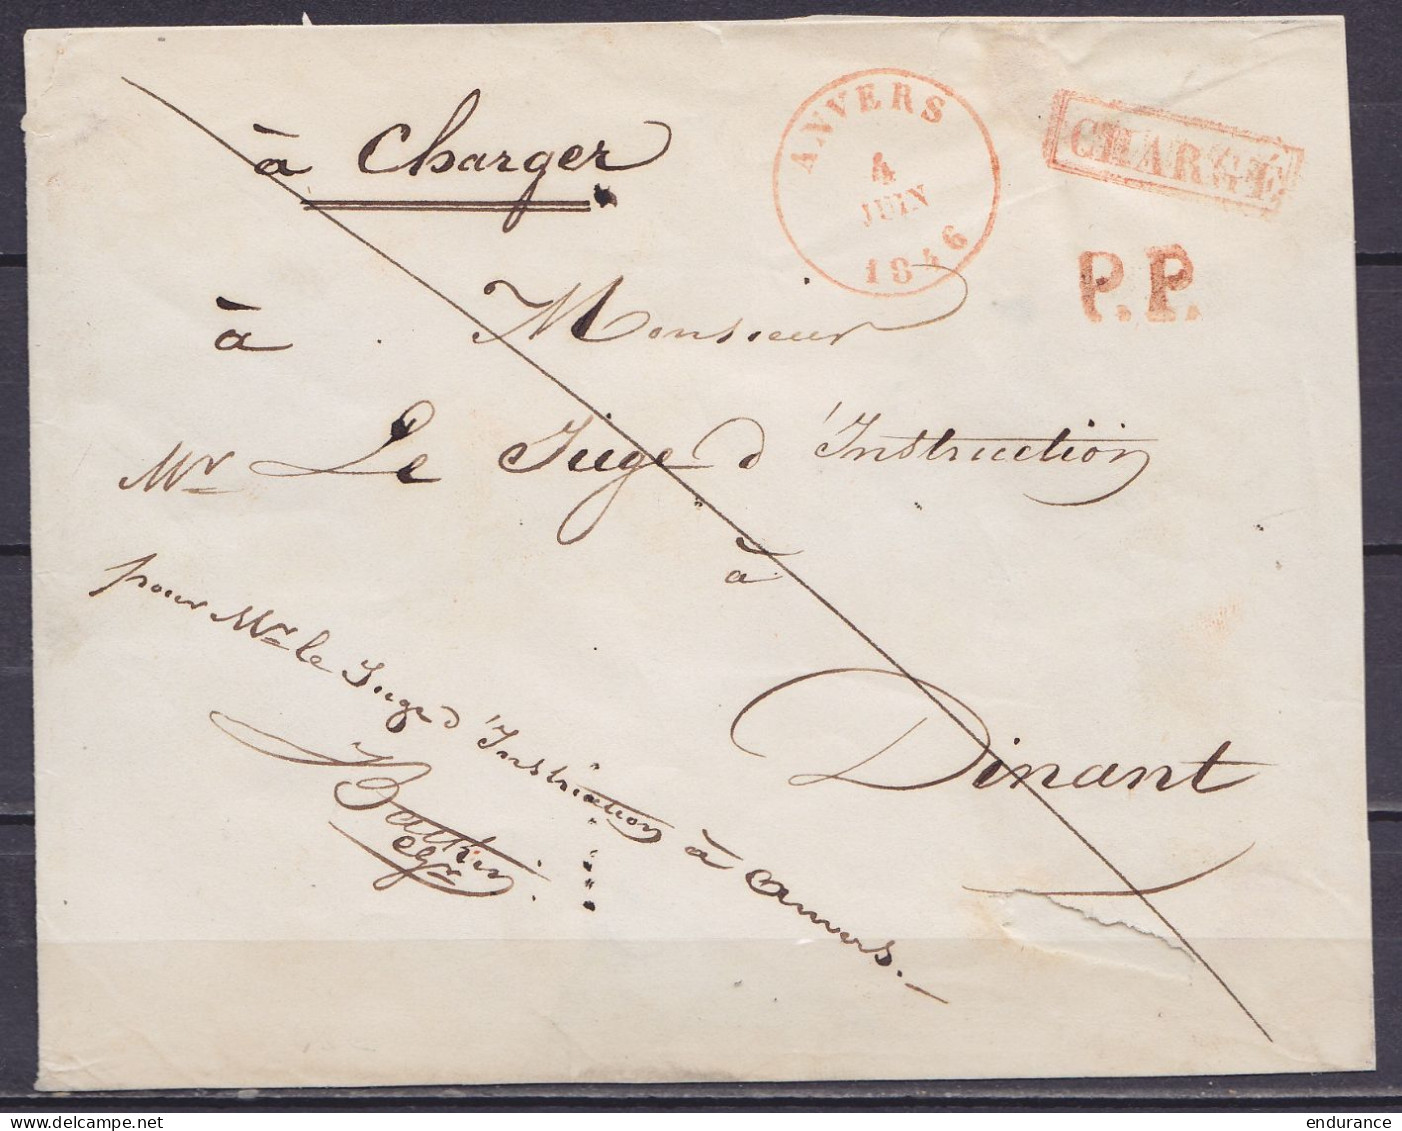 à Charger
ANVERS
4
JUIN
1846
CHARGÉ
P.P.
à Monsieur
Mr Le Juge d'Instruction
à
Dinant
pour Mr le Juge d'Instruction à Anvers.
delcampe.net
endurance